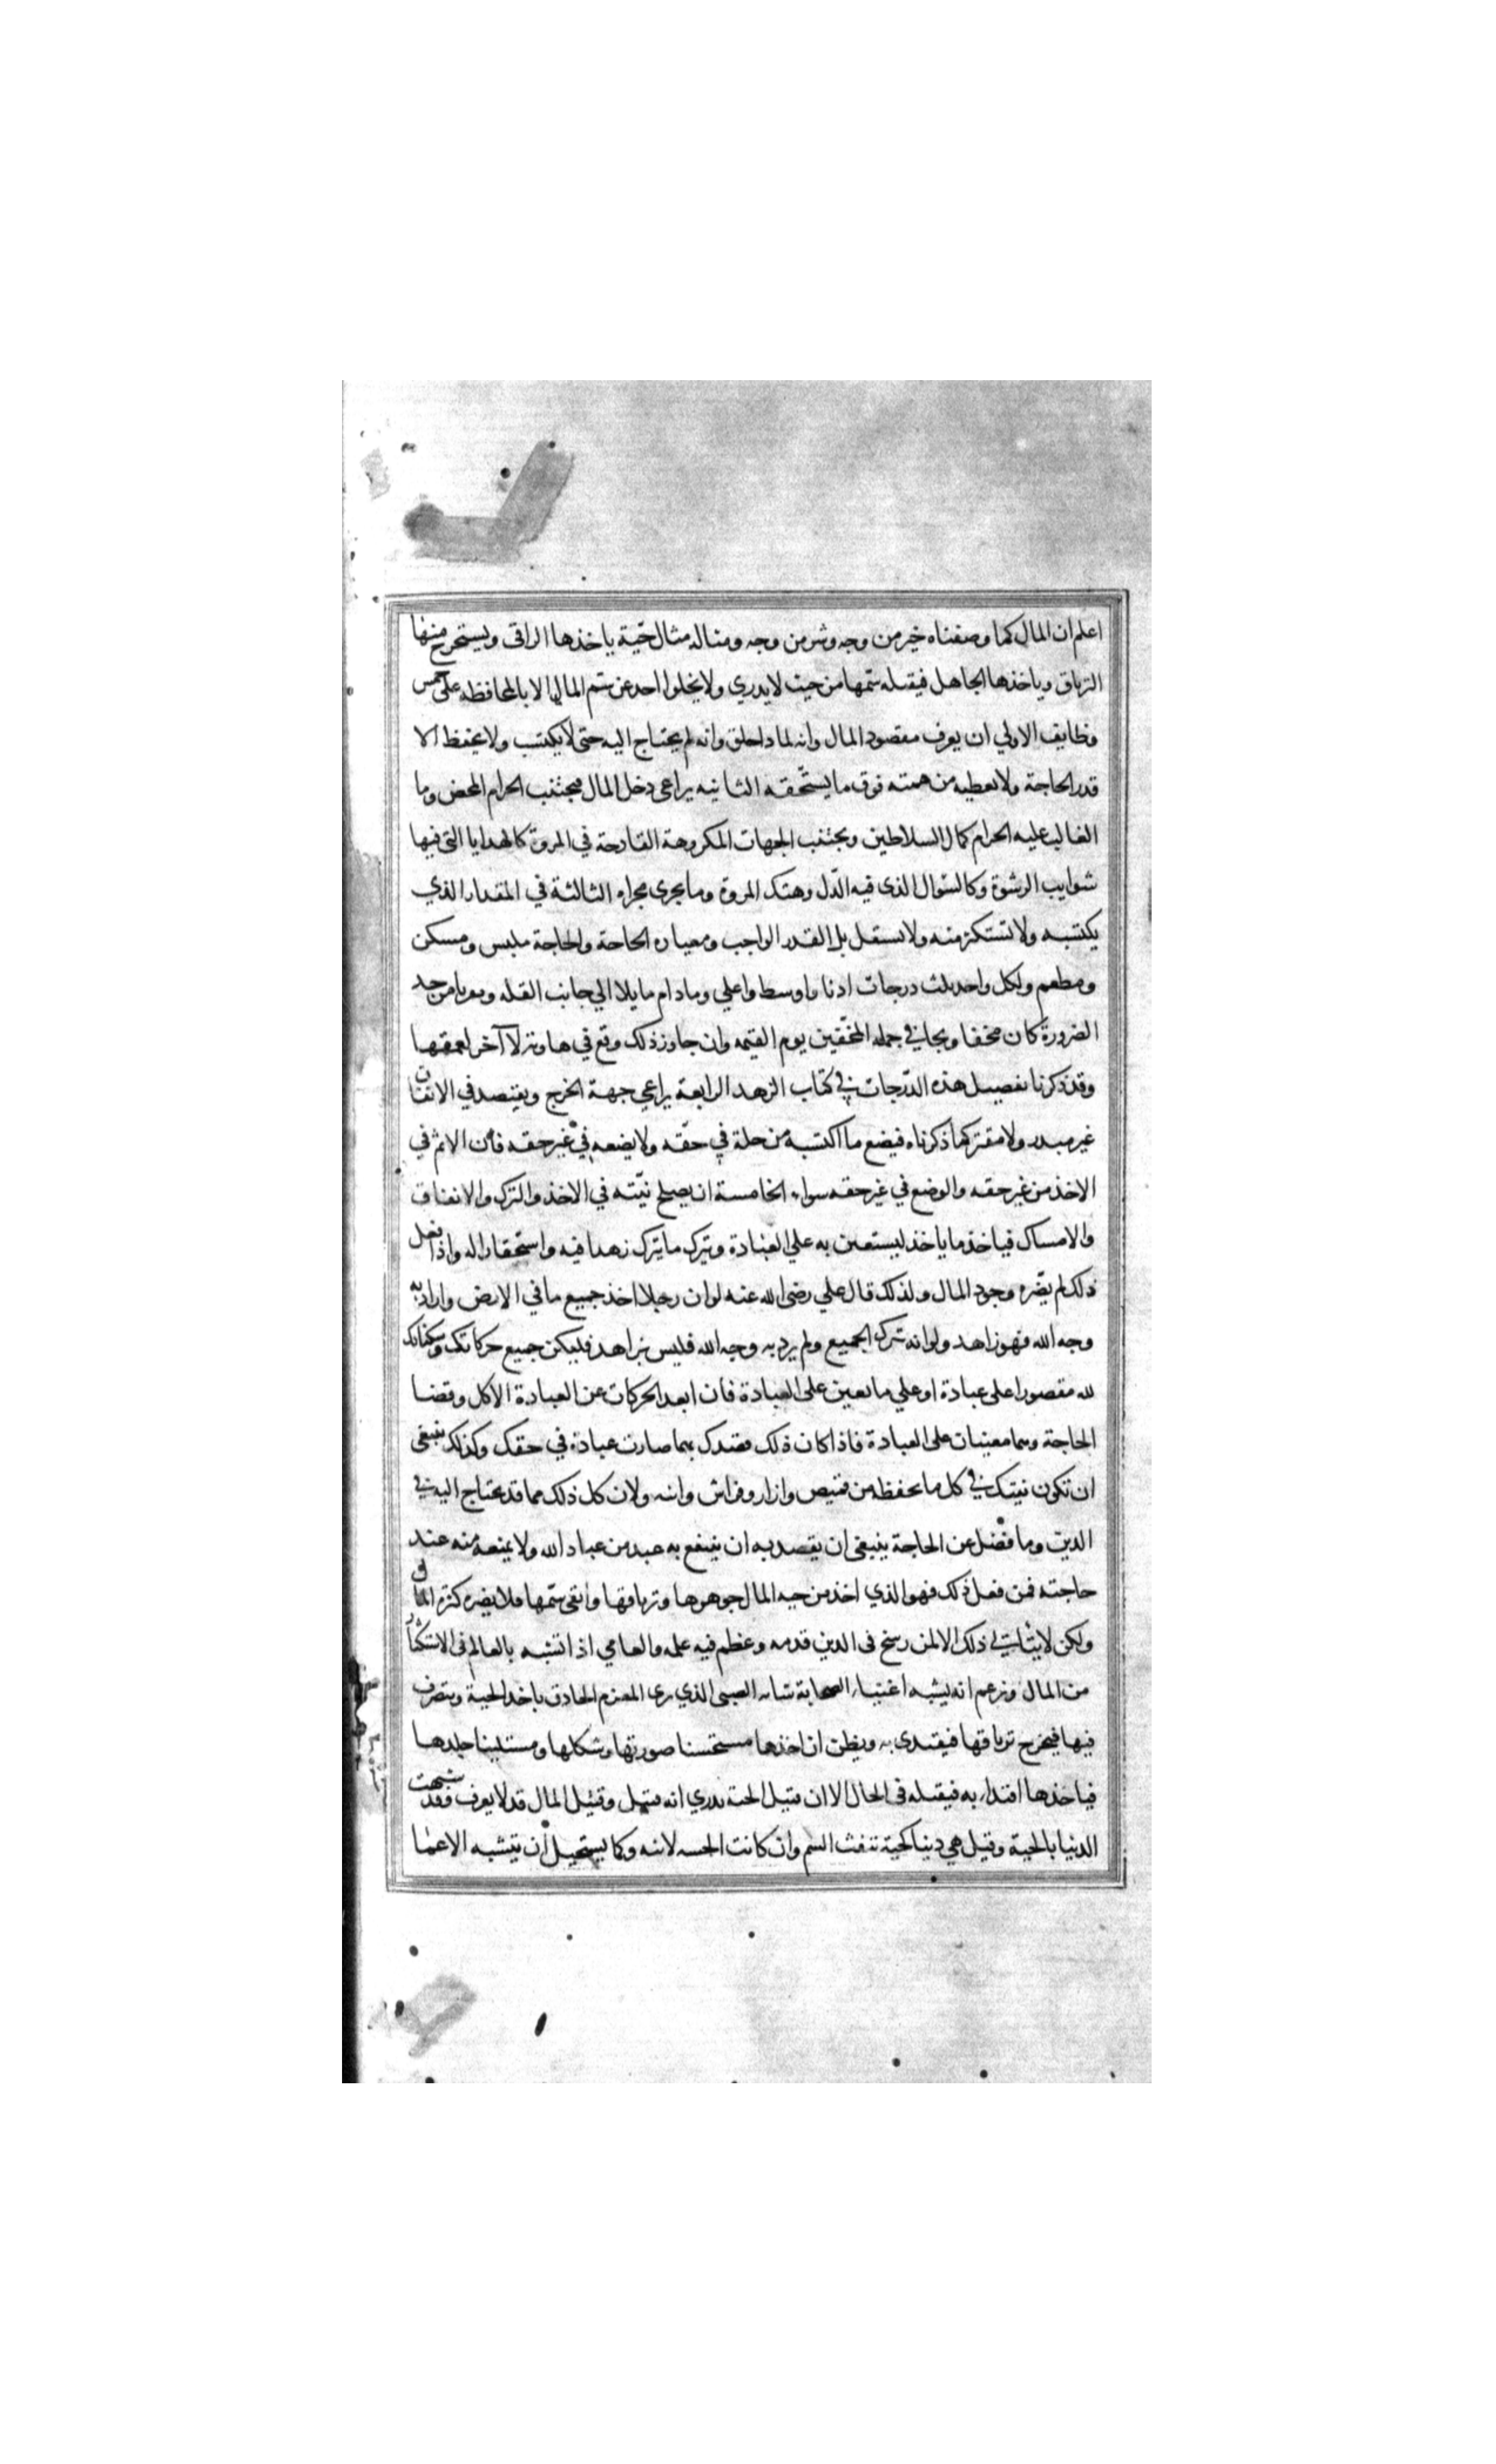 اعلم ان المال كما وصفناه خير من وجه وشر من وجه ومثاله مثال حيّة ياخذها الراقى ويستخرج منها
الترياق وياخذها الجاهل فيقتله سمّها من حيث لا يدري ولا يخلوا احد عن سم المال الا بالمحافظه على خمس
وظايف الاولي ان يعرف مقصود المال وانه لماذا خلق وانه لم يحتاج اليه حتى لا يكتسب ولا يحفظ الا
قدر الحاجة ولا يعطيه من همته فوق ما يستحّقه الثانيه يراعى دخل المال فيجتنب الحرام المحض وما
الغالب عليه الحرام كمال السلاطين ويجتنب الجهات المكروهة القادحة في المروة كالهدايا التى فيها
شوايب الرشوة وكالسّوال الذى فيه الذّل وهتك المروة وما يجرى مجراه الثالثة في المقدار الذي
يكتسبه ولا تستكثر منه ولا يستقل بل القدر الواجب ومعياره الحاجة والحاجة ملبس ومسكن
ومطعم ولكل واحد ثلث درجات ادنا واوسط واعلي ومادام مايلا الي جانب القله ومن حد
الضرورة كان مخفا ويجا في جمله المخفّين يوم القيمه وان جاوز ذلك وقع في هاوية لا آخر لعمقها
وقد ذكرنا تفصيل هذه الدّرجات في كتاب الزهد الرابعة يراعي جهة الخرج ويقتصد في الانفاق
غير مبذر ولا مقتر كما ذكرناه فيضع ما اكتسبه من حلة في حقّه ولا يضعه في غير حقه فان الاثم في
الاخذ من غير حقه والوضع في غير حقه سواء الخامسة ان يصلح نيّته في الاخذ والترك والانفاق
والامساك فياخذ ما ياخذ ليستعين به علي العبادة ويترك ما يترك زهدا فيه واستحقارا له واذا فعل
ذلك لم يضّره وجود المال ولذلك قال علي رضى الله عنه لو ان رجلا اخذ جميع ما في الارض واراد به
وجه الله فهو زاهد ولو انه ترك الجميع ولم يرد به وجه الله فليس بزاهد فليكن جميع حركاتك وسكناتك
لله مقصورا على عبادة او علي ما يعين على العبادة فان ابعد الحركات عن العبادة الاكل وقضا
الحاجة وهما معينان على العبادة فاذا كان ذلك مقصدك بهما صارت عبادة في حقك وكذلك ينبغى
ان تكون نيتك في كل ما يحفظه من قميص وازار وفراش وانيه ولان كل ذلك مما قد يحتاج اليه في
الدين وما فضل عن الحاجة ينبغى ان يقصد به ان ينتفع به عبد من عباد الله ولا يمنعه منه عند
حاجته فمن فعل ذلك فهو الذي اخذ من حيه المال جوهرها وترياقها واتقى سمّها فلا يضره كثرة المال
ولكن لا يتأتى ذلك الا لمن رسخ فى الدين قدمه وعظم فيه علمه والعامي اذا تشبه بالعالم فى الاستكثار
من المال وزعم انه يشبه اغنياء الصحابة شابه الصبى الذي يرى المعزم الحاذق ياخذ الحية ويتصرف
فيها فيخرج ترياقها فيقتدى به ويظن ان اخذها مستحسنا صورتها وشكلها ومستلينا جلدها
فياخذها اقتداء به فيقتله فى الحال الا ان قتيل الحية يدري انه قتيل وقتيل المال قد لا يعرف فقد شبهت
الدنيا بالحية وقيل هي دنيا كحية تنفث السم وان كانت المجسه لانت وكما يستحيل أن يتشبه الاعما